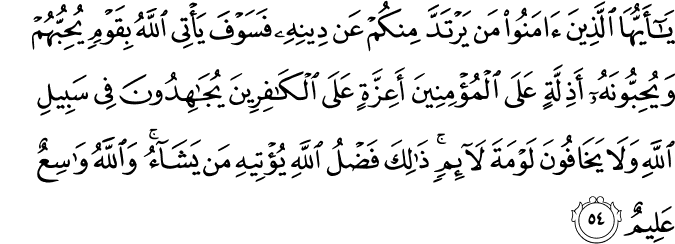 يَـٰٓأَيُّهَا ٱلَّذِينَ ءَامَنُوا۟ مَن يَرْتَدَّ مِنكُمْ عَن دِينِهِۦ فَسَوْفَ يَأْتِى ٱللَّهُ بِقَوْمٍۢ يُحِبُّهُمْ
وَيُحِبُّونَهُۥٓ أَذِلَّةٍ عَلَى ٱلْمُؤْمِنِينَ أَعِزَّةٍ عَلَى ٱلْكَـٰفِرِينَ يُجَـٰهِدُونَ فِى سَبِيلِ
ٱللَّهِ وَلَا يَخَافُونَ لَوْمَةَ لَآئِمٍۢ ۚ ذَٰلِكَ فَضْلُ ٱللَّهِ يُؤْتِيهِ مَن يَشَآءُ ۚ وَٱللَّهُ وَٰسِعٌ
عَلِيمٌ ٥٤